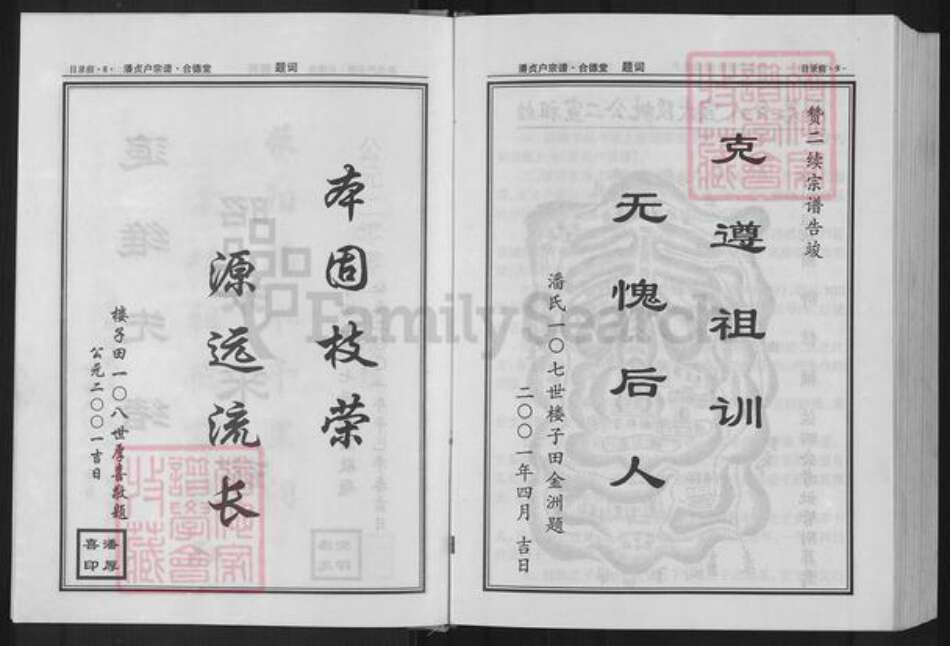 目录前·8· 潘贞户宗谱·合德堂 题词
本固枝荣
源远流长
楼子田一〇八世厚喜敬题
公元二〇〇一吉日
潘厚
喜印
潘贞户宗谱·合德堂 题词 目录前·9·
赞二续宗谱告竣
克遵祖训
无愧后人
潘氏一〇七世楼子田金洲题
二〇〇一年四月 吉日
FamilySearch